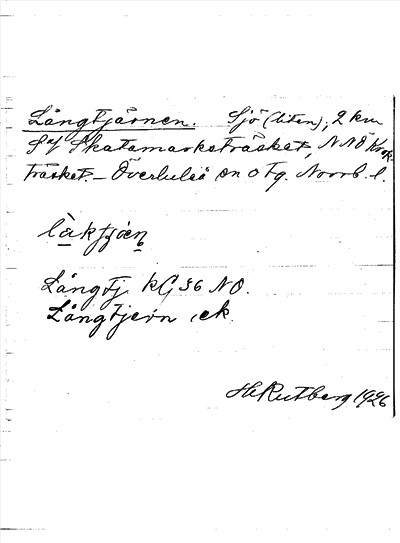 Långtjärnen. Sjö (liten), 2 km
S of Skatamarksträsket, NNÖ Kvar
träsket. – Överluleå sn o tg. Norrb. l.
làktjǻen
Långtj. kG 36 NO.
Långtjern, ek.
H Rutberg 1926